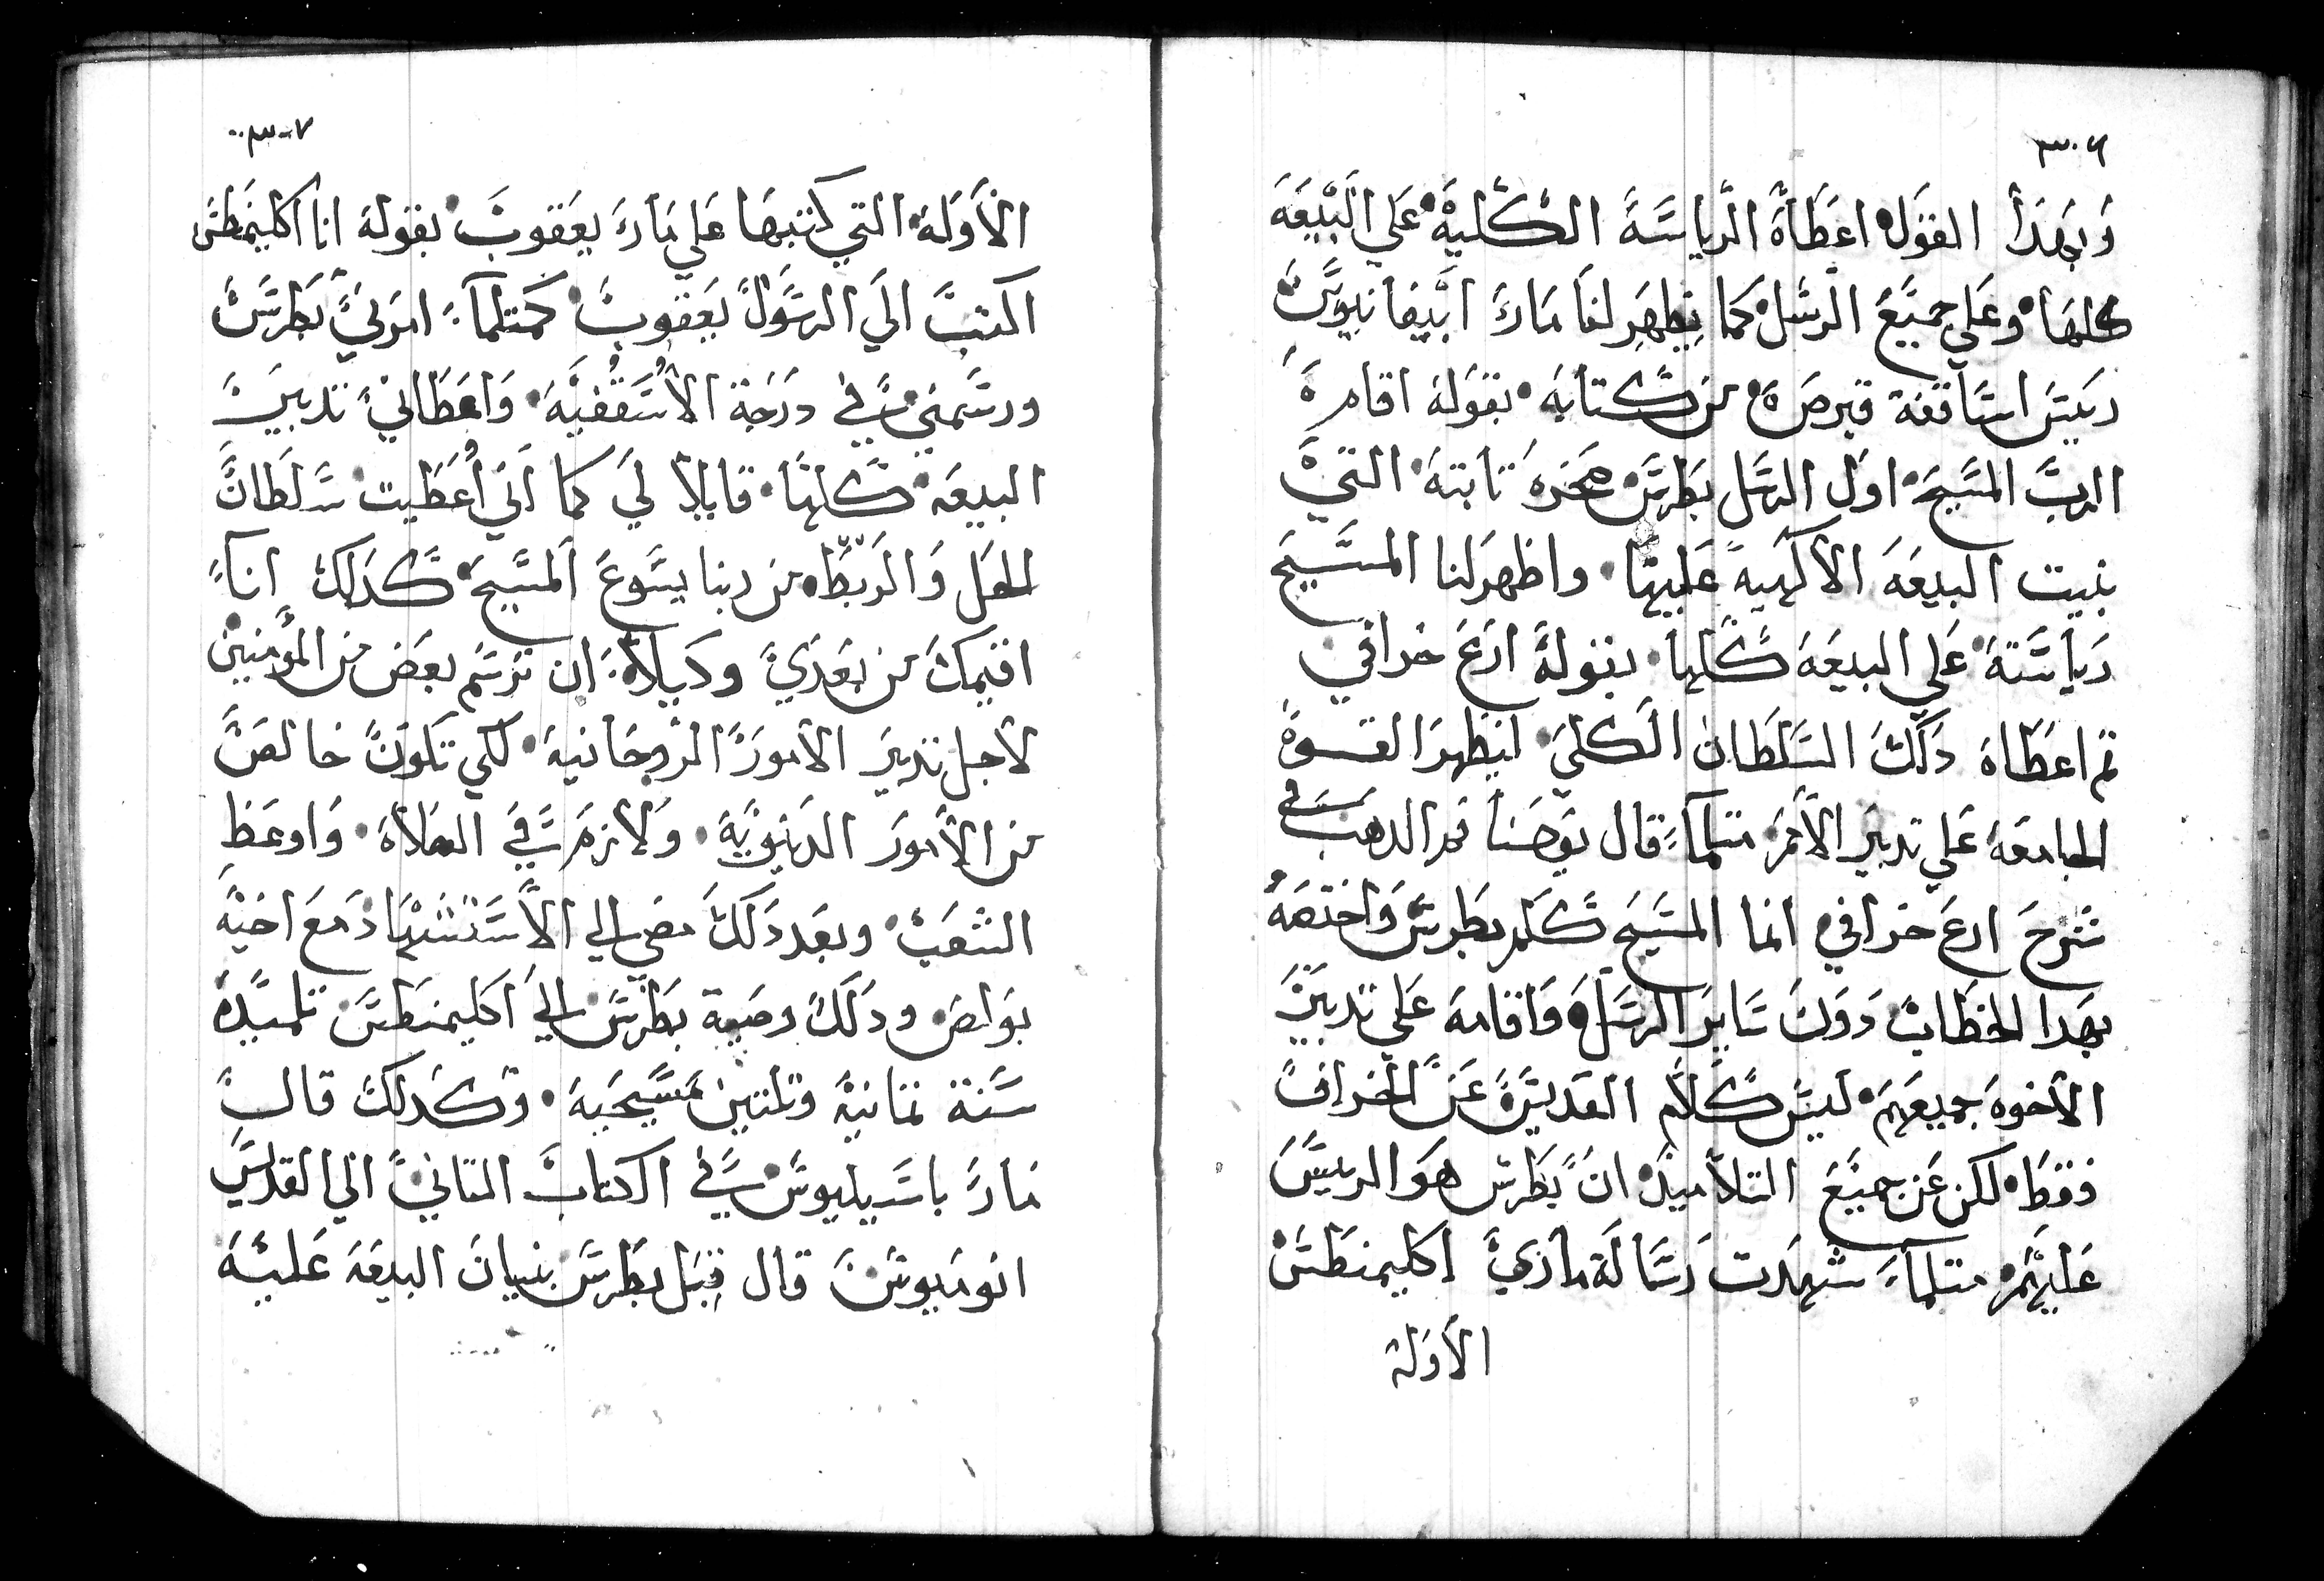 ٣٠٦
وبهدا القول اعطاه الرياسة الكلية علي البيعه
كلها وعلي جميع الرسل كما يظهر لنا مار ابيفانيوس
رييس اساقفة قبرص من كتابه بقوله اقام
الرب المسيح اول الرسل بطرس صخره تابته التي
بنيت البيعه الالهيه عليها واظهر لنا المسيح
رياسته علي البيعه كلها بقوله ارع خرافي
تم اعطاه دلك السلطان الكلي ليظهر القوة
الجامعة علي تدبير الامر متلما قال يوحنا فم الدهب في
شرح ارع خرافي انما المسيح كلم بطرس واختصه
بهدا الخطاب دون ساير الرسل واقامه علي تدبير
الاخوه جميعهم ليس كلام القديس عن الخراف
فقط لكن عن جميع التلاميد ان بطرس هو الرييس
عليهم متلما شهدت رسالة ماري اكليمنطس
الاوله
٣٠٧
الاوله التي كتبها علي مار يعقوب بقوله انا اكليمنطس
اكتب الي الرسول يعقوب كمتلما امرني بطرس
ورسمني في درجة الاسقفيه واعطاني تدبير
البيعه كلها قايلا لي كما اني أعطيت سلطان
الحل والربط من ربنا يسوع المسيح كدلك انا
اقيمك من بعدي وكيلا ان ترسم بعض من المؤمنين
لاجل تدبير الامور الروحانيه لكي تكون خالص
من الامور الدنيويه ولازم في الصلاه واوعظ
الشعب وبعد دلك مضي الي الاستشهاد مع اخيه
بولص ودلك وصية بطرس الي اكليمنطس تلميده
سنة تمانية وتلتين مسيحيه وكدلك قال
مار باسيليوس في الكتاب التاني الي القديس
انوميوس قال قبل بطرس بنيان البيعه عليه